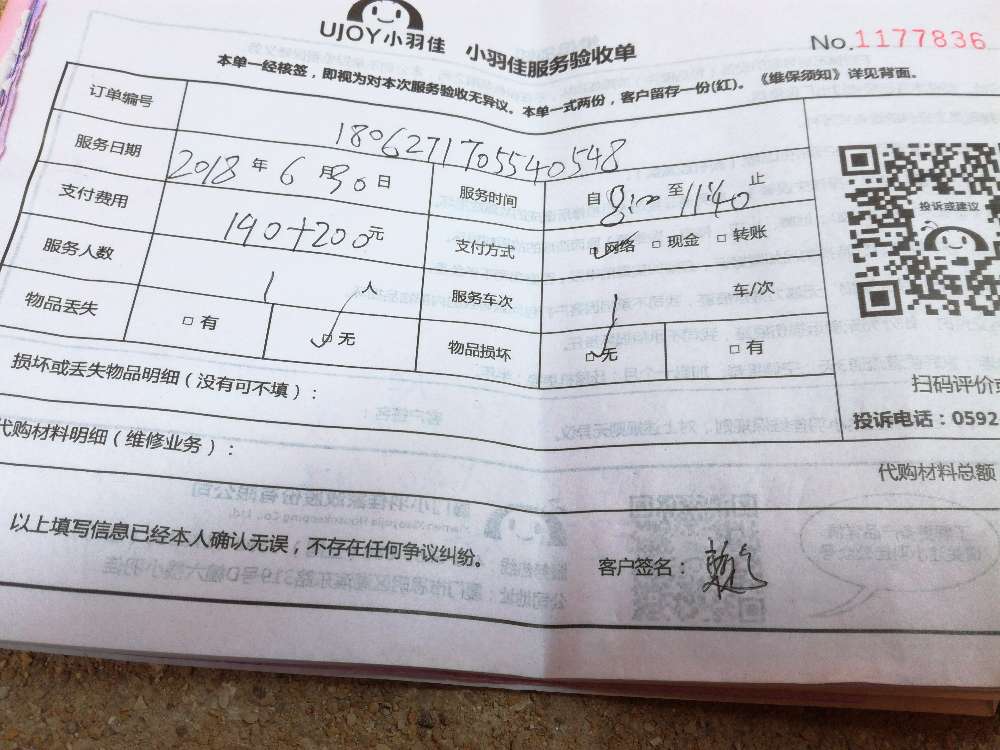 UJOY小羽佳 小羽佳服务验收单 No.1177836
本单一经核签，即视为对本次服务验收无异议。本单一式两份，客户留存一份(红)。《维保须知》详见背面。
订单编号 180627170554 0548
服务日期 2018年6月30日 服务时间 自 至11:40止
支付费用 190+200元 支付方式 □网络 □现金 □转账
服务人数 1人 服务车次 1 车/次
物品丢失 □有 □无 物品损坏 □无 □有
投诉或建议
扫码评价
投诉电话：0592
损坏或丢失物品明细（没有可不填）：
代购材料明细（维修业务）：
代购材料总额
以上填写信息已经本人确认无误，不存在任何争议纠纷。
客户签名：